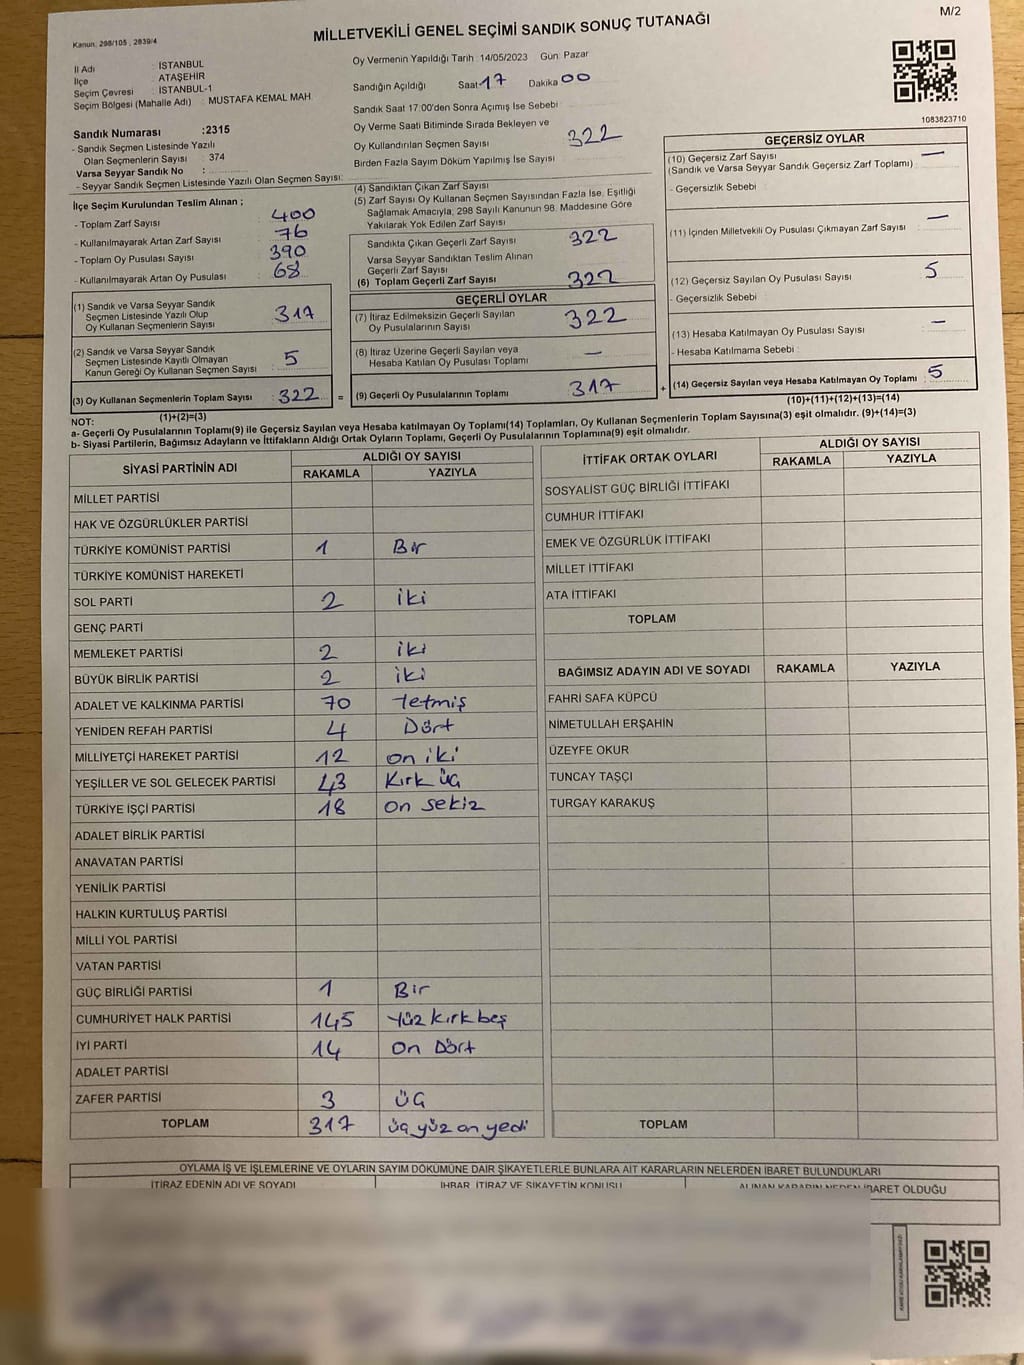 M/2
Kanun. 298/105 , 2839/4
MİLLETVEKİLİ GENEL SEÇİMİ SANDIK SONUÇ TUTANAĞI
İl Adı : İSTANBUL
İlçe : ATAŞEHİR
Seçim Çevresi : İSTANBUL-1
Seçim Bölgesi (Mahalle Adı) : MUSTAFA KEMAL MAH
Sandık Numarası :2315
- Sandık Seçmen Listesinde Yazılı
Olan Seçmenlerin Sayısı : 374
Varsa Seyyar Sandık No :
- Seyyar Sandık Seçmen Listesinde Yazılı Olan Seçmen Sayısı:
Oy Vermenin Yapıldığı Tarih :14/05/2023 Gün: Pazar
Sandığın Açıldığı Saat 17 Dakika 00
Sandık Saat 17:00'den Sonra Açımış İse Sebebi
Oy Verme Saati Bitiminde Sırada Bekleyen ve
Oy Kullandırılan Seçmen Sayısı 322
Birden Fazla Sayım Döküm Yapılmış İse Sayısı
1083823710
İlçe Seçim Kurulundan Teslim Alınan ;
- Toplam Zarf Sayısı : 400
- Kullanılmayarak Artan Zarf Sayısı : 76
- Toplam Oy Pusulası Sayısı : 390
- Kullanılmayarak Artan Oy Pusulası : 68
(1) Sandık ve Varsa Seyyar Sandık
Seçmen Listesinde Yazılı Olup
Oy Kullanan Seçmenlerin Sayısı : 317
(2) Sandık ve Varsa Seyyar Sandık
Seçmen Listesinde Kayıtlı Olmayan
Kanun Gereği Oy Kullanan Seçmen Sayısı : 5
(3) Oy Kullanan Seçmenlerin Toplam Sayısı : 322 =
(1)+(2)=(3)
(4) Sandıktan Çıkan Zarf Sayısı
(5) Zarf Sayısı Oy Kullanan Seçmen Sayısından Fazla İse, Eşitliği
Sağlamak Amacıyla, 298 Sayılı Kanunun 98. Maddesine Göre
Yakılarak Yok Edilen Zarf Sayısı
Sandıkta Çıkan Geçerli Zarf Sayısı 322
Varsa Seyyar Sandıktan Teslim Alınan
Geçerli Zarf Sayısı
(6) Toplam Geçerli Zarf Sayısı 322
GEÇERLİ OYLAR
(7) İtiraz Edilmeksizin Geçerli Sayılan
Oy Pusulalarının Sayısı 322
(8) İtiraz Üzerine Geçerli Sayılan veya
Hesaba Katılan Oy Pusulası Toplamı —
(9) Geçerli Oy Pusulalarının Toplamı 317 +
GEÇERSİZ OYLAR
(10) Geçersiz Zarf Sayısı —
(Sandık ve Varsa Seyyar Sandık Geçersiz Zarf Toplamı) :
- Geçersizlik Sebebi :
(11) İçinden Milletvekili Oy Pusulası Çıkmayan Zarf Sayısı : —
(12) Geçersiz Sayılan Oy Pusulası Sayısı : 5
- Geçersizlik Sebebi :
(13) Hesaba Katılmayan Oy Pusulası Sayısı : —
- Hesaba Katılmama Sebebi :
(14) Geçersiz Sayılan veya Hesaba Katılmayan Oy Toplamı : 5
(10)+(11)+(12)+(13)=(14)
NOT:
a- Geçerli Oy Pusulalarının Toplamı(9) ile Geçersiz Sayılan veya Hesaba Katılmayan Oy Toplamı(14) Toplamları, Oy Kullanan Seçmenlerin Toplam Sayısına(3) eşit olmalıdır. (9)+(14)=(3)
b- Siyasi Partilerin, Bağımsız Adayların ve İttifakların Aldığı Ortak Oyların Toplamı, Geçerli Oy Pusulalarının Toplamına(9) eşit olmalıdır.
SİYASİ PARTİNİN ADI ALDIĞI OY SAYISI
RAKAMLA YAZIYLA
MİLLET PARTİSİ
HAK VE ÖZGÜRLÜKLER PARTİSİ
TÜRKİYE KOMÜNİST PARTİSİ 1 Bir
TÜRKİYE KOMÜNİST HAREKETİ
SOL PARTİ 2 iki
GENÇ PARTİ
MEMLEKET PARTİSİ 2 iki
BÜYÜK BİRLİK PARTİSİ 2 iki
ADALET VE KALKINMA PARTİSİ 70 Yetmiş
YENİDEN REFAH PARTİSİ 4 Dört
MİLLİYETÇİ HAREKET PARTİSİ 12 on iki
YEŞİLLER VE SOL GELECEK PARTİSİ 43 Kırk üç
TÜRKİYE İŞÇİ PARTİSİ 18 On sekiz
ADALET BİRLİK PARTİSİ
ANAVATAN PARTİSİ
YENİLİK PARTİSİ
HALKIN KURTULUŞ PARTİSİ
MİLLİ YOL PARTİSİ
VATAN PARTİSİ
GÜÇ BİRLİĞİ PARTİSİ 1 Bir
CUMHURİYET HALK PARTİSİ 145 Yüz kırk beş
İYİ PARTİ 14 On Dört
ADALET PARTİSİ
ZAFER PARTİSİ 3 üç
TOPLAM 317 üç yüz on yedi
İTTİFAK ORTAK OYLARI ALDIĞI OY SAYISI
RAKAMLA YAZIYLA
SOSYALİST GÜÇ BİRLİĞİ İTTİFAKI
CUMHUR İTTİFAKI
EMEK VE ÖZGÜRLÜK İTTİFAKI
MİLLET İTTİFAKI
ATA İTTİFAKI
TOPLAM
BAĞIMSIZ ADAYIN ADI VE SOYADI RAKAMLA YAZIYLA
FAHRİ SAFA KÜPCÜ
NİMETULLAH ERŞAHİN
ÜZEYFE OKUR
TUNCAY TAŞÇI
TURGAY KARAKUŞ
TOPLAM
OYLAMA İŞ VE İŞLEMLERİNE VE OYLARIN SAYIM DÖKÜMÜNE DAİR ŞİKAYETLERLE BUNLARA AİT KARARLARIN NELERDEN İBARET BULUNDUKLARI
İTİRAZ EDENİN ADI VE SOYADI İHBAR, İTİRAZ VE ŞİKAYETİN KONUSU ALINAN KARARIN NEDEN İBARET OLDUĞU